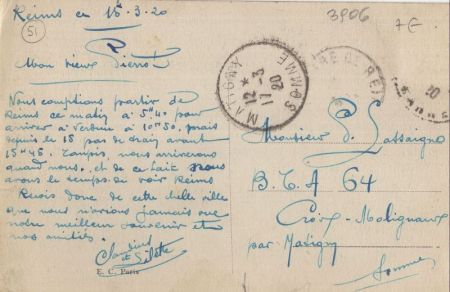 Reims ce 15.3.20
3906
7E
51
Mon vieux Pierrot
Nous comptions partir de
Reims ce matin à 5h40 pour
arriver à Verbrie à 10h50, mais
depuis le 15 pas de train avant
15h45. Tanpis, nous arriverons
quand même. et de ce fait nous
avons le temps de voir Reims
Reçois donc de cette belle ville
que nous n'avions jamais vue
notre meilleur souvenir et
nos amitiés.
et
E. C. Paris
MATIGNY
12 *
17-3
20
SOMME
20
MARNE
Monsieur P. Lassaigne
B.T.A 64
Croix-Molignaux
par Matigny
Somme